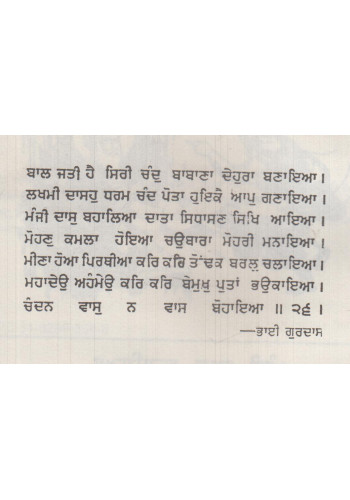 ਬਾਲ ਜਤੀ ਹੈ ਸਿਰੀ ਚੰਦੁ ਬਾਬਾਣਾ ਦੇਹੁਰਾ ਬਣਾਇਆ ।
ਲਖਮੀ ਦਾਸਹੁ ਧਰਮ ਚੰਦ ਪੋਤਾ ਹੁਇਕੈ ਆਪੁ ਗਣਾਇਆ ।
ਮੰਜੀ ਦਾਸੁ ਬਹਾਲਿਆ ਦਾਤਾ ਸਿਧਾਸਣ ਸਿਖਿ ਆਇਆ ।
ਮੋਹਣੁ ਕਮਲਾ ਹੋਇਆ ਚਉਬਾਰਾ ਮੋਹਰੀ ਮਨਾਇਆ ।
ਮੀਣਾ ਹੋਆ ਪਿਰਥੀਆ ਕਰਿ ਕਰਿ ਤੋਂਢਕ ਬਰਲੁ ਚਲਾਇਆ ।
ਮਹਾਦੇਉ ਅਹੰਮੇਉ ਕਰਿ ਕਰਿ ਬੇਮੁਖੁ ਪੁਤਾਂ ਭਉਕਾਇਆ ।
ਚੰਦਨ ਵਾਸੁ ਨ ਵਾਸ ਬੋਹਾਇਆ ॥ ੨੬ ।
—ਭਾਈ ਗੁਰਦਾਸ